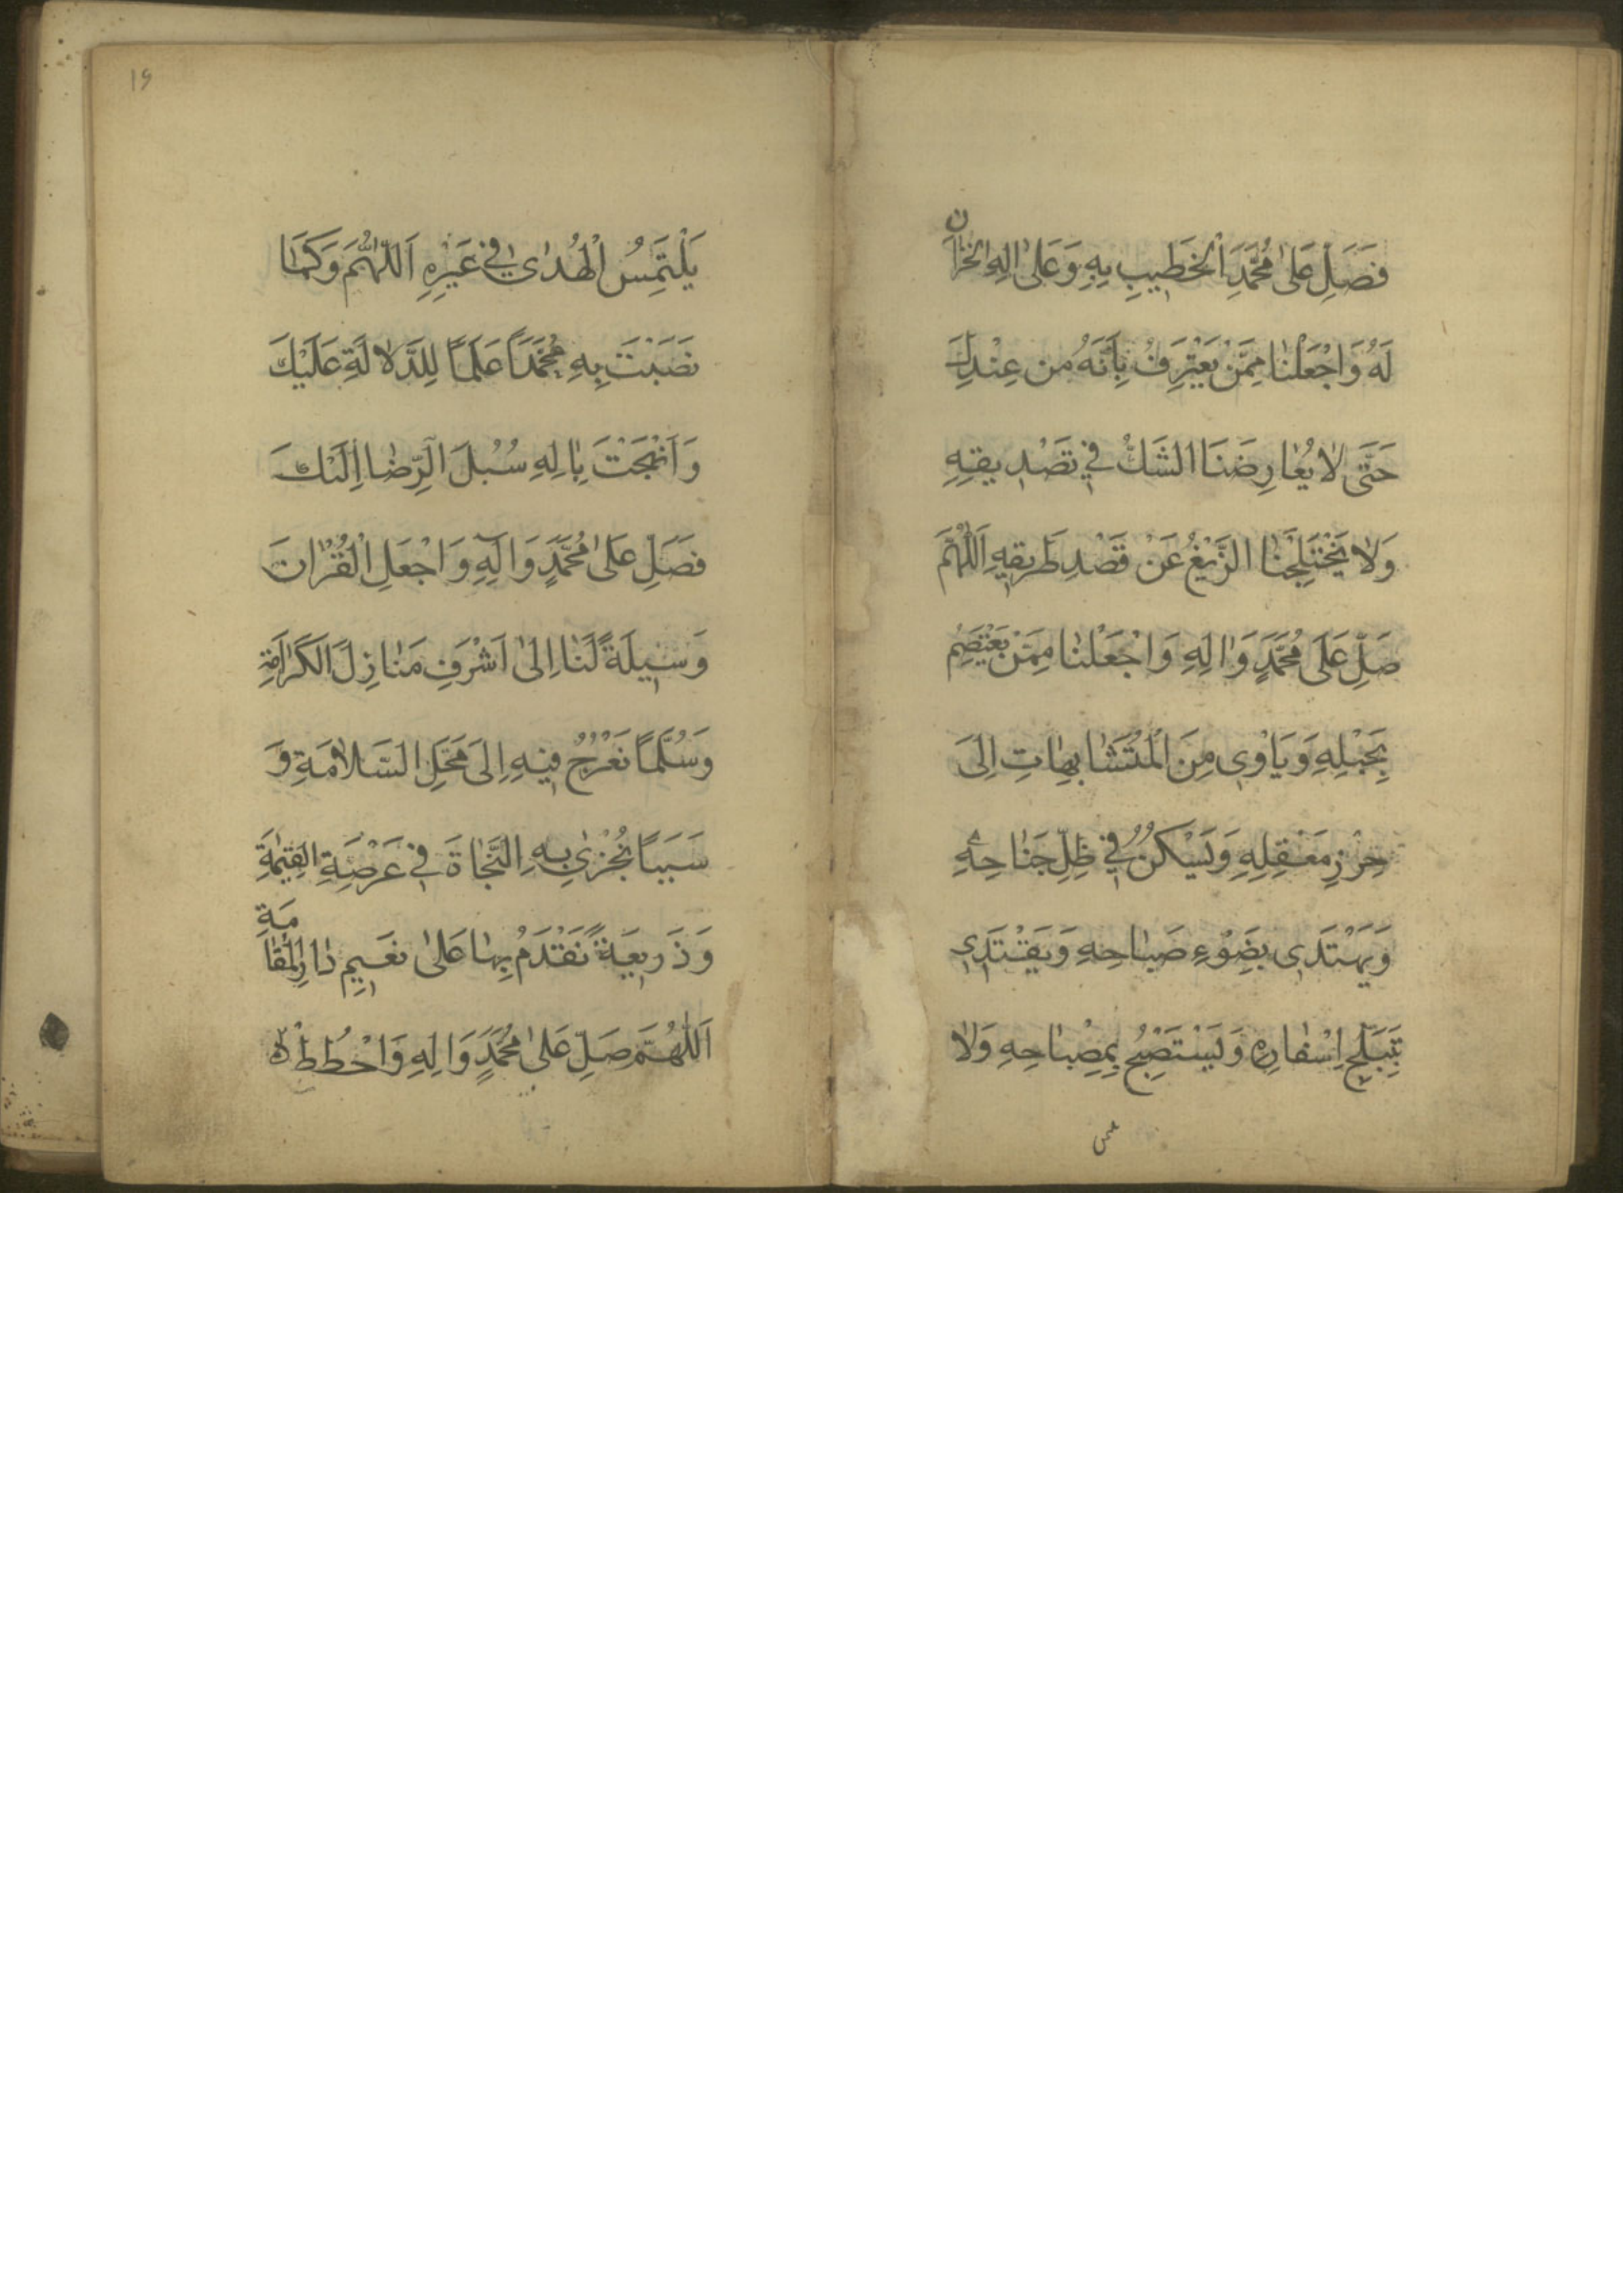 فَصَلِّ عَلىٰ مُحَمَّدٍ الْخَطيبِ بِهِ وَعَلىٰ الِهِ الخُزّانِ
لَهُ وَاجْعَلْنٰا مِمَّنْ يَعْتَرِفُ بِأَنَّهُ مِن عِنْدِكَ
حَتّىٰ لاٰ يُعٰارِضَنَا الشَكُّ في تَصْديقِهِ
وَلاٰ يَخْتَلِجَنٰا الزَّيْغُ عَنْ قَصْدِ طَريقِهِ اَللّٰهُمَّ
صَلِّ عَلَى مُحَمَّدٍ وَاٰلِهِ وَاجْعَلْنٰا مِمَّنْ يَعْتَصِمُ
بِحَبْلِهِ وَيَاْوي مِنَ الْمُتَشٰابِهٰاتِ اِلىَ
حِرْزِ مَعْقِلِهِ وَيَسْكُنُ في ظِلِّ جَنٰاحِهِ
وَيَهْتَدي بِضَوْءِ صَبٰاحِهِ وَيَقْتَدي
بِتَبَلُّجِ اِسْفٰارِهِ وَيَسْتَصْبِحُ بِمِصْبٰاحِهِ وَلاٰ
١٦
يَلْتَمِسُ الْهُدىٰ في غَيْرِهِ اَللّٰهُمَّ وَكَمٰا
نَصَبْتَ بِهِ مُحَمَّدًا عَلَمًا لِلدَّلاٰلَةِ عَلَيْكَ
وَاَنْهَجْتَ بِاٰلِهِ سُبُلَ الرِّضٰا اِلَيْكَ
فَصَلِّ عَلىٰ مُحَمَّدٍ وَالِهِ وَاجْعَلِ الْقُرْاٰنَ
وَسيلَةً لَنٰا اِلىٰ اَشْرَفِ مَنٰازِلَ الكَرٰامَةِ
وَسُلَّمًا نَعْرُجُ فيهِ اِلىَ مَحَلِّ السَّلاٰمَةِ وَ
سَبَبًا نُجْزىٰ بِهِ النَّجٰاةَ في عَرْصَةِ القِيٰمَةِ
وَذَريعَةً نَقْدَمُ بِهٰا عَلىٰ نَعيمِ دٰارِ الْمُقٰامَةِ
اَللّٰهُمَّ صَلِّ عَلىٰ مُحَمَّدٍ وَالِهِ وَاحْطُطْ